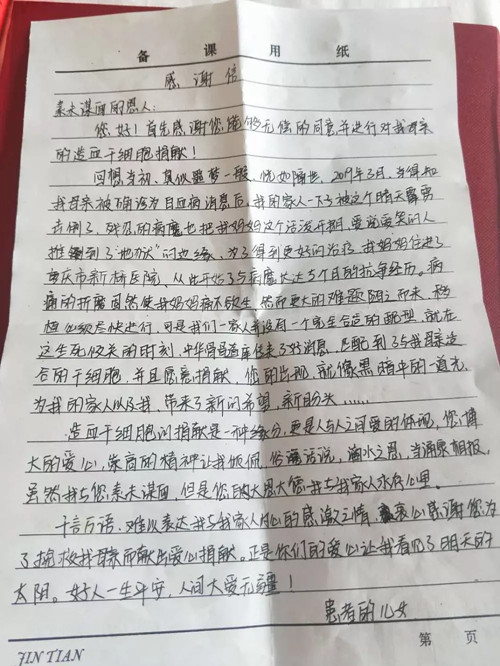 备课用纸
感谢信
素未谋面的恩人:
您好!首先感谢您能够无偿的同意并进行对我母亲
的造血干细胞捐献!
回想当初,真似噩梦一般,恍如隔世。2019年3月,当得知
我母亲被确诊为白血病消息后,我的家人一下子被这个晴天霹雳
击倒了,残忍的病魔也把我妈妈这个活泼开朗,爱说爱笑的人
推到了“地狱”的边缘,为了得到更好的治疗,我妈妈住进了
重庆市新桥医院,从此开始了与病魔长达5个月的抗争经历。病
痛的折磨自然使我妈妈痛不欲生,然而更大的难题随之而来,移
植必须尽快进行,可是我们一家人并没有一个完全合适的配型,就在
这生死攸关的时刻,中华骨髓库传来了好消息,匹配到了与我母亲适
合的干细胞,并且愿意捐献,您的出现,就像黑暗中的一道光,
为我的家人以及我,带来了新的希望,新的盼头......
造血干细胞的捐献是一种缘分,更是人与人之间爱的体现,您博
大的爱心,崇高的精神让我倾佩,俗话话说,滴水之恩,当涌泉相报,
虽然我与您素未谋面,但是您的大恩大德我与我家人永存心里。
千言万语,难以表达我与我家人内心的感激之情,衷心感谢您为
了拯救我母亲而献出爱心捐献。正是你们的爱心让我看见了明天的
太阳。好人一生平安,人间大爱无疆!
患者的儿女
JIN TIAN
第 页